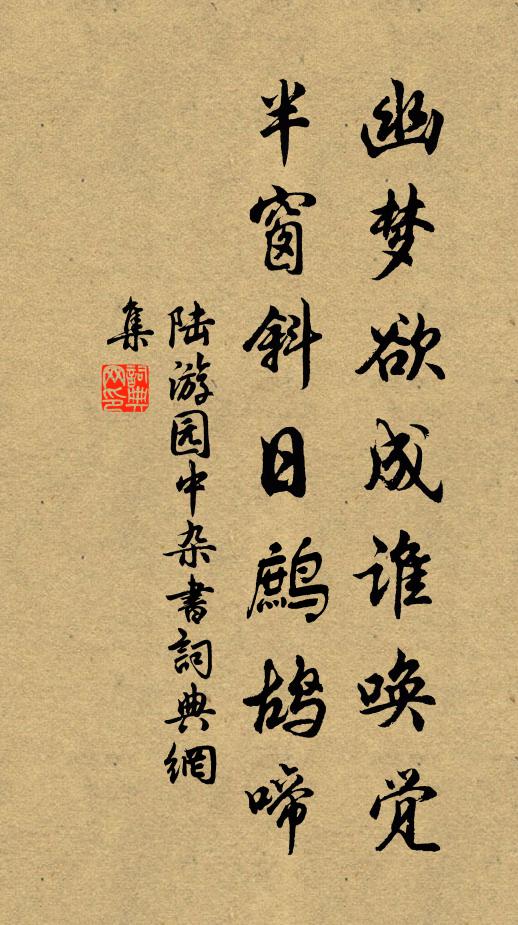 幽梦欲成谁唤觉
半窗斜日鹧鸪啼
陆游园中杂书詞典網
集
詞典網印